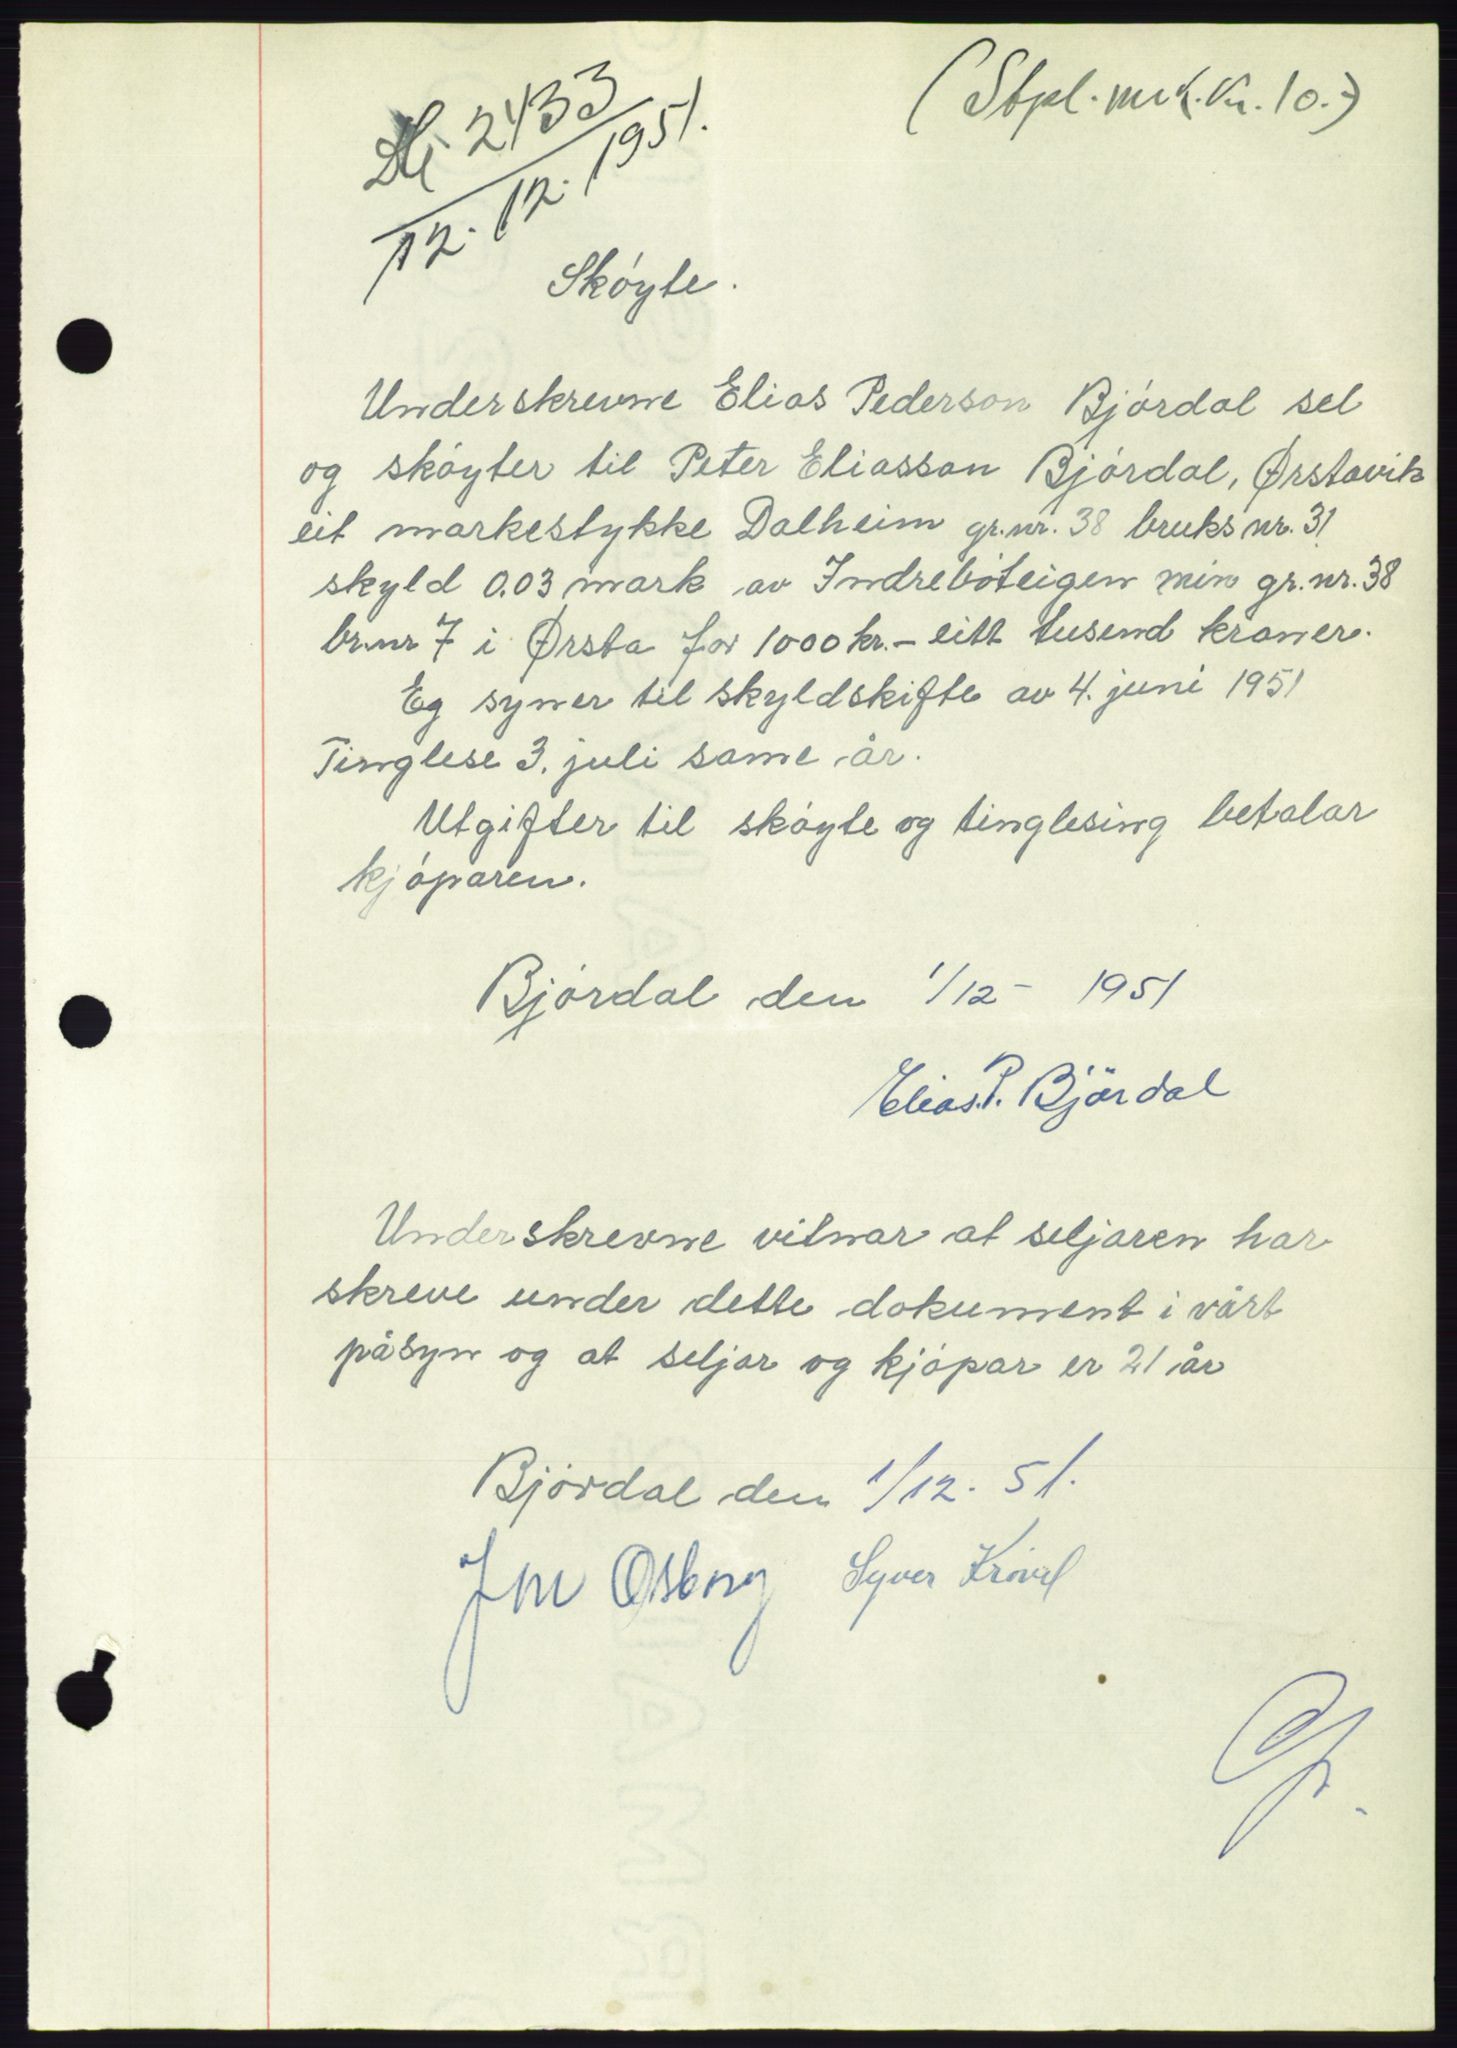 (Stpl.mrk. Kr. 10.-)
2433
12.12.1951.
Skóyte.
Underskrevne Elias Pederson Bjórdal sel
og skóyter til Peter Eliasson Bjórdal, Ørstavik
eit markestykke Dalheim gr.nr. 38 bruksnr. 31
skyld 0.03 mark av Indrebóteigen min gr.nr. 38
br.nr 7 i Ørsta for 1000 kr. – eitt tusend kroner.
Eg syner til skyldskifte av 4. juni 1951
Tinglese 3. juli same år.
Utgifter til skóyte og tinglesing betalar
kjóparen.
Bjórdal den 1/12 – 1951
Elias. P. Björdal
Underskrevne vitnar at seljaren har
skreve under dette dokument i vårt
påsyn og at seljar og kjópar er 21 år
Bjórdal den 1/12. 51.
Jon Osborg Syver Krövel